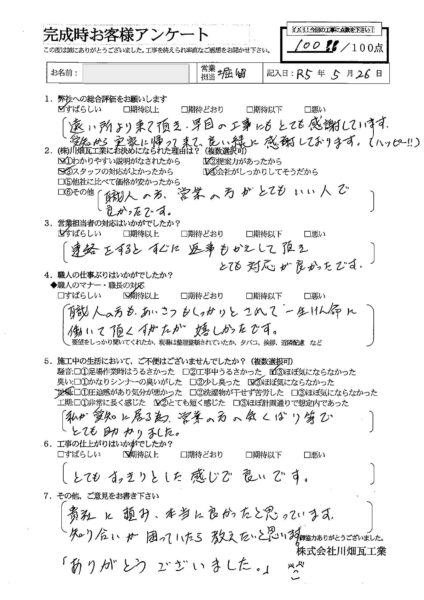 完成時お客様アンケート
この度は誠にありがとうございました。工事を終えられ率直なご感想をお聞かせ下さい。
今回の工事に点数を下さい!
100!! /100点
お名前:
営業担当 堀留
記入日: R5年 5月 26日
1. 弊社への総合評価をお願いします
☑すばらしい □期待以上 □期待どおり □期待以下 □悪い
遠い所より来て頂き、早目の工事にもとても感謝しています。
愛知から実家に帰って来て、良い様に感謝しております。(ハッピー!!)
2. (株)川畑瓦工業にお決めになられた理由は?(複数選択可)
☑①わかりやすい説明がなされたから ☑②提案力があったから
☑③スタッフの対応がよかったから ☑④会社がしっかりしてそうだから
□⑤他社に比べて価格が安かったから
□⑥その他
職人の方、営業の方がとてもいい人で
良かったです。
3. 営業担当者の対応はいかがでしたか?
☑すばらしい □期待以上 □期待どおり □期待以下 □悪い
連絡をするとすぐに返事もかえして頂き
とても対応が良かったです。
4. 職人の仕事ぶりはいかがでしたか?
◆職人のマナー・職長の対応
□すばらしい ☑期待以上 □期待どおり □期待以下 □悪い
職人の方も、あいさつもしっかりとされて一生けん命に
働いて頂くすがたが嬉しかったです。
要望をしっかり聞いてくれたか、現場は整理整頓されていたか、タバコ、挨拶、近隣配慮 など
5. 施工中の生活において、ご不便はございませんでしたか?(複数選択可)
騒音:□①足場作業時はうるさかった □②工事中うるさかった ☑③ほぼ気にならなかった
臭い:□①かなりシンナーの臭いがした □②少し臭った ☑③ほぼ気にならなかった
□①圧迫感があり気分が悪かった □②洗濯物が干せず苦労した □③ほぼ気にならなかった
工期:□①非常に長く感じた ☑②とても短く感じた □③ほぼ計画通りで想定内であった
私が愛知に居る為、営業の方の気くばり等で
とても助かりました。
6. 工事の仕上がりはいかがでしたか?
□すばらしい ☑期待以上 □期待どおり □期待以下 □悪い
とてもすっきりとした感じで良いです。
7. その他、ご意見をお書き下さい
貴社に頼み、本当に良かったと思っています。
知り合いが困っていたら教えたいと思います。
ご協力ありがとうございました。
株式会社川畑瓦工業
「ありがとうございました。」